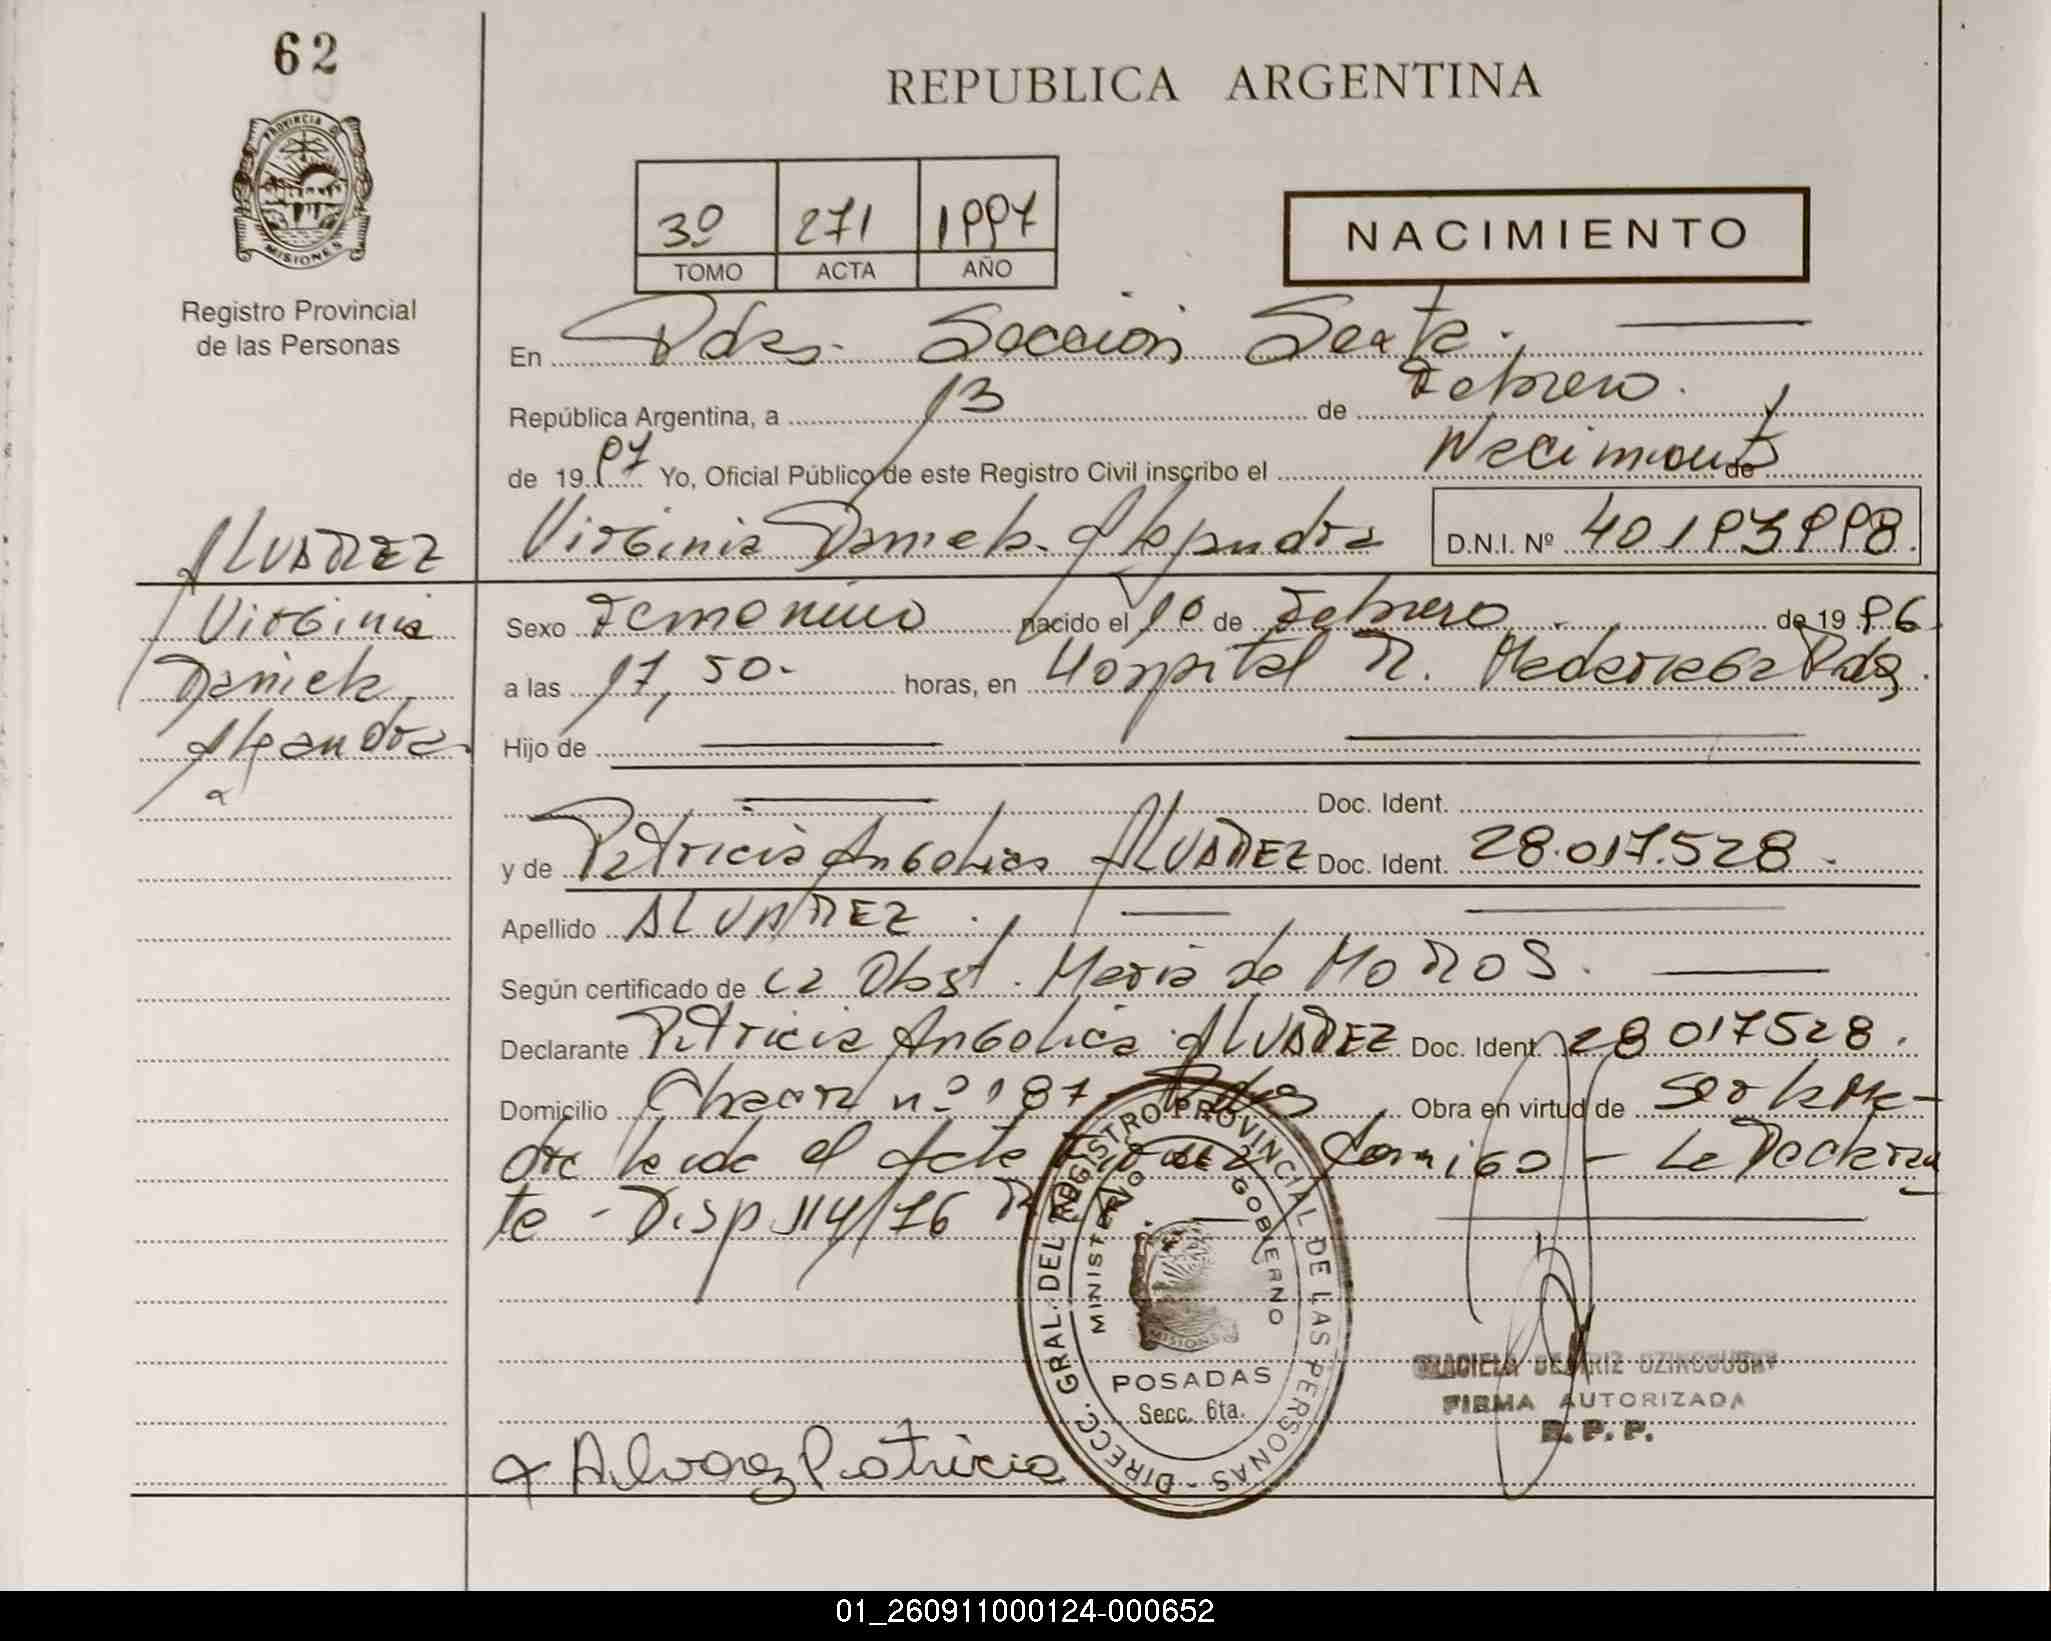 62
REPUBLICA ARGENTINA
PROVINCIA DE
MISIONES
Registro Provincial
de las Personas
3º 271 1997
TOMO ACTA AÑO
NACIMIENTO
En Pdas. Sección Sexta.
República Argentina, a 13 de Febrero.
de 1997 Yo, Oficial Público de este Registro Civil inscribo el Nacimiento de
Virginia Daniela Alejandra D.N.I. Nº 40193998.
ALVAREZ
Virginia
Daniela
Alejandra
Sexo Femenino nacido el 10 de Febrero de 1996
a las 17,50- horas, en Hospital R. Madariaga Pdas.
Hijo de
Doc. Ident.
y de Patricia Angelica ALVAREZ Doc. Ident. 28.017.528
Apellido ALVAREZ
Según certificado de la Obst. Maria de MOROS.
Declarante Patricia Angelica ALVAREZ Doc. Ident. 28017528.
Domicilio Chacra nº 187 - Pdas Obra en virtud de ser la Ma-
dre leida el Acta Firma conmigo - La Declaran
te - Disp 114/76
DIRECC. GRAL. DEL REGISTRO PROVINCIAL DE LAS PERSONAS -
MINISTERIO DE GOBIERNO
MISIONES
POSADAS
Secc. 6ta.
GRACIELA BEATRIZ
FIRMA AUTORIZADA
R. P. P.
Alvarez Patricia
01_260911000124-000652